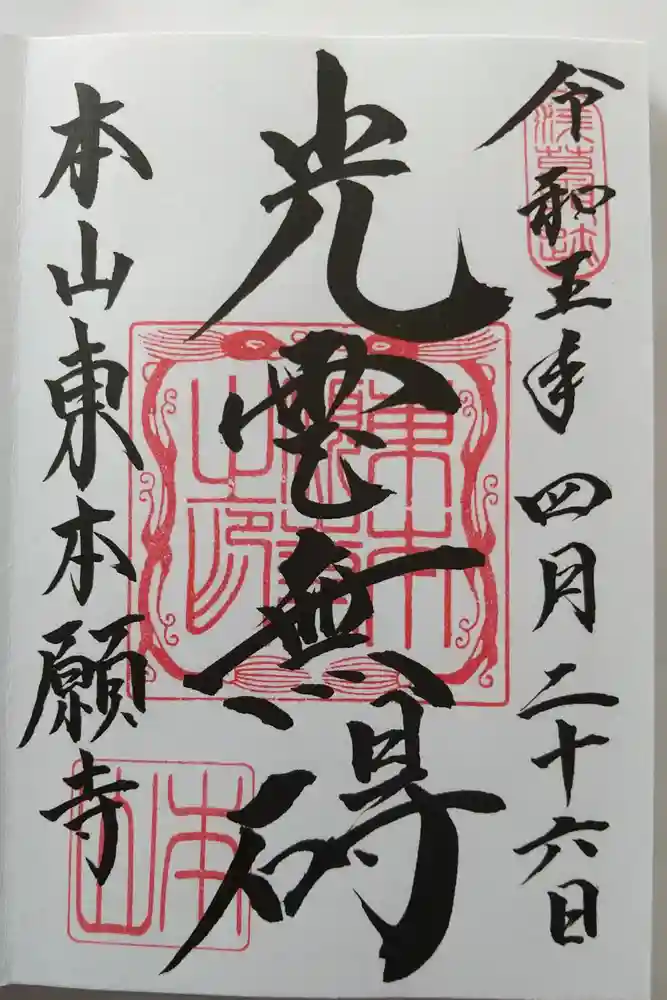 令和五年四月二十六日
光雲無碍
本山東本願寺
浅草本跡
東本願寺之印
本山